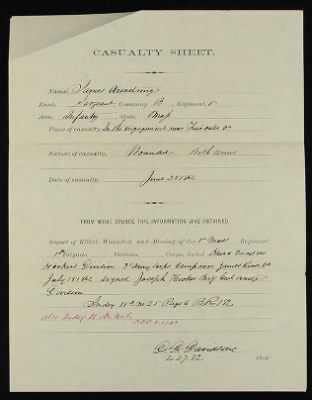 CASUALTY SHEET.
Name, James Armstrong
Rank, Sergeant Company B, Regiment, 1"
Arm, Infantry, State, Mass
Place of casualty, In the engagement near Fair oaks Va
Nature of casualty, Wounded Both arms
Date of casualty, June 25 1862
FROM WHAT SOURCE THIS INFORMATION WAS OBTAINED.
Report of Killed, Wounded, and Missing of the 1" Mass Regiment
1" Brigade Division, Corps, dated Head Quarters
Hookers Division 3" Army Corps Camp near James River Va
July 1862 signed Joseph Hooker Brig Genl Comdg
Division
Index 25 Page 6
also Index
Davidson
4.27.82 Clerk